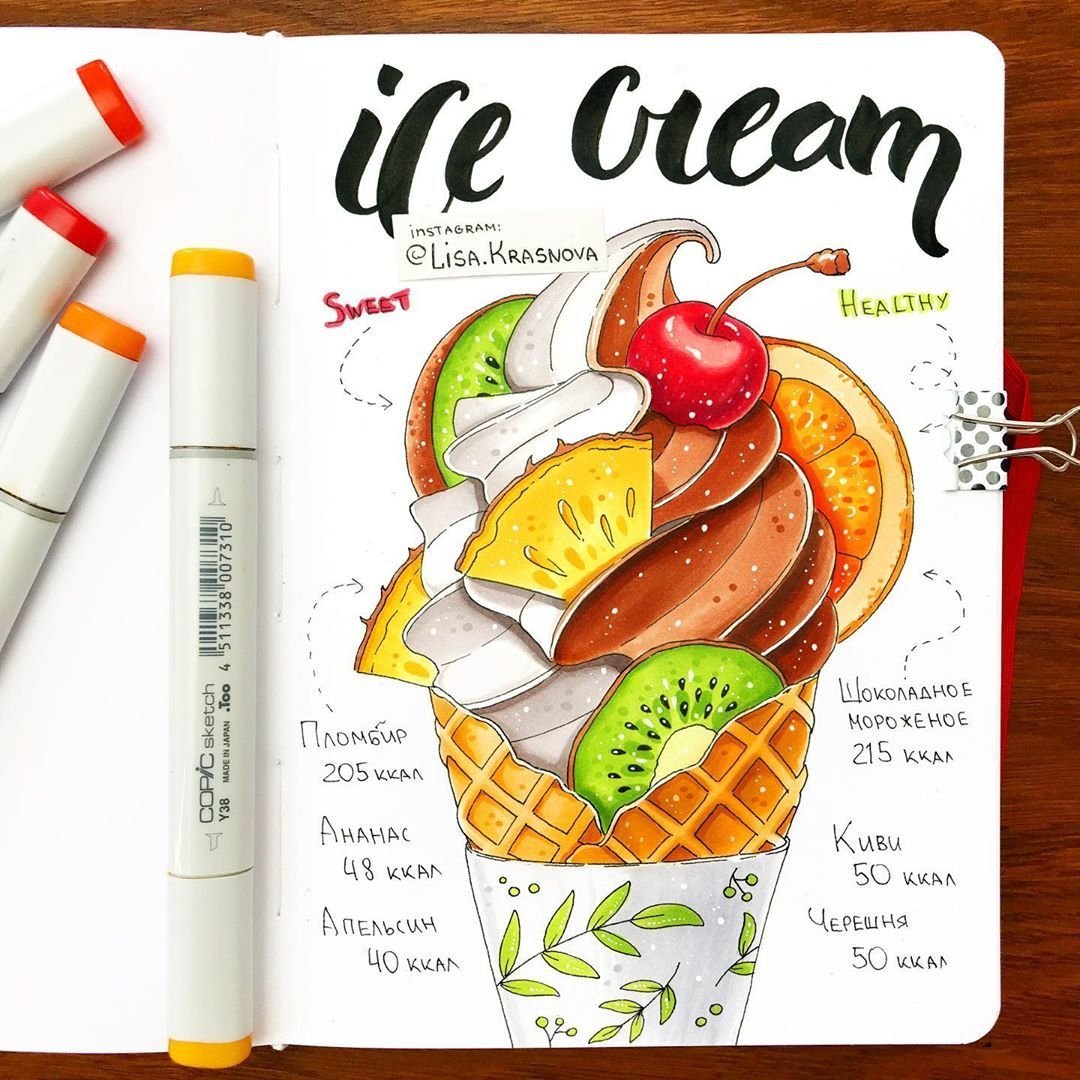 ice cream
INSTAGRAM:
@LISA.KRASNOVA
SWEET
HEALTHY
ПЛОМБИР
205 ККАЛ
ШОКОЛАДНОЕ
МОРОЖЕНОЕ
215 ККАЛ
АНАНАС
48 ККАЛ
КИВИ
50 ККАЛ
АПЕЛЬСИН
40 ККАЛ
ЧЕРЕШНЯ
50 ККАЛ
4 511338 007310
COPIC sketch .Too
Y38 MADE IN JAPAN